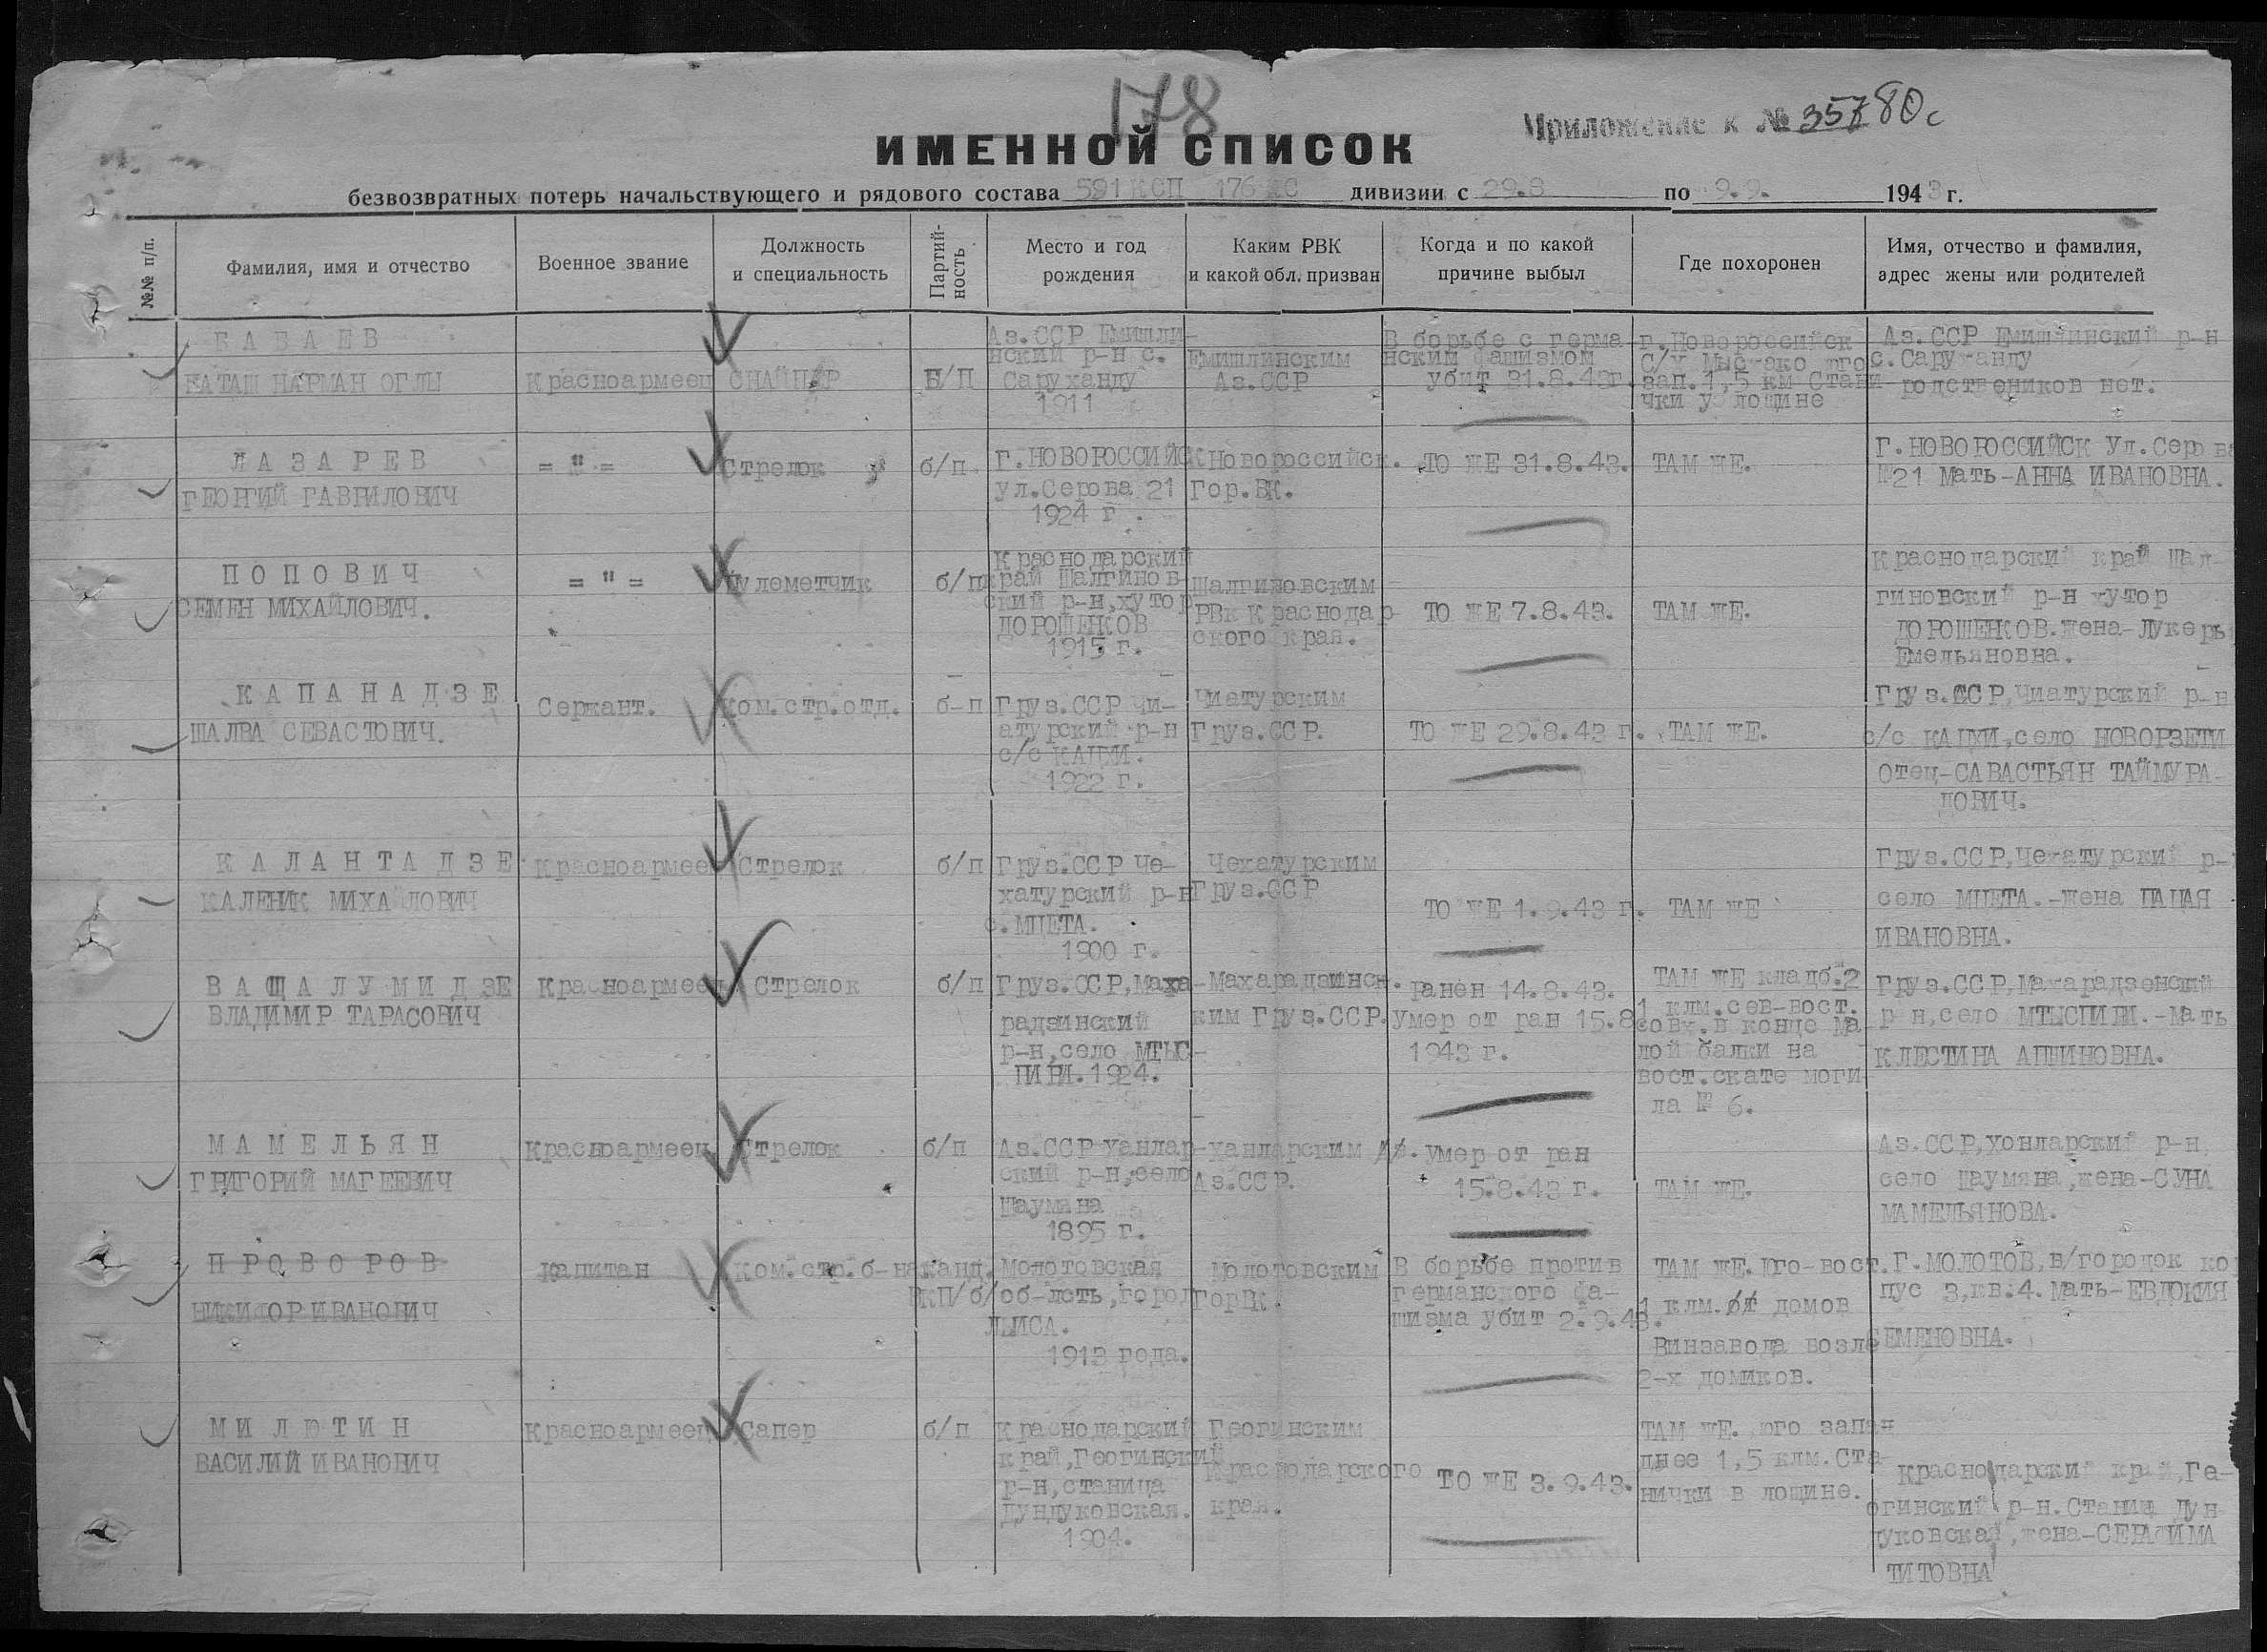 178
Приложение к № 35780с
ИМЕННОЙ СПИСОК
безвозвратных потерь начальствующего и рядового состава 591 КСП 176 КС дивизии с 29.8 по 9.9. 1943 г.
№№ п/п.
Фамилия, имя и отчество
Военное звание
Должность
и специальность
Партий-
ность
Место и год
рождения
Каким РВК
и какой обл. призван
Когда и по какой
причине выбыл
Где похоронен
Имя, отчество и фамилия,
адрес жены или родителей
БАБАЕВ
БАТАШ НАРМАН ОГЛЫ
Красноармеец
СНАЙПЕР
Б/П
Аз.ССР Емишли-
нский р-н с.
Саруханду
1911
Емишлинским
Аз.ССР
В борьбе с герма-
нским фашизмом
убит 31.8.43г.
г.Новороссийск
С/Х Мысхако юго
зап.1,5 км Стани-
чки у лощине
Аз.ССР Емишлинский р-н
с.Саруханду
родствеников нет.
ЛАЗАРЕВ
ГЕОРГИЙ ГАВРИЛОВИЧ
="=
Стрелок
б/п
Г.НОВОРОССИЙСК
ул.Серова 21
1924 г.
Новороссийск.
Гор.ВК.
ТО ЖЕ 31.8.43.
ТАМ ЖЕ.
Г.НОВОРОССИЙСК Ул.Серова
№21 Мать-АННА ИВАНОВНА.
ПОПОВИЧ
СЕМЕН МИХАЙЛОВИЧ.
="=
Пулеметчик
б/п
Краснодарский
край Шалгинов-
ский р-н,хутор
ДОРОШЕНКОВ
1915 г.
Шалгиновским
РВК Краснодар
ского края.
ТО ЖЕ 7.8.43.
ТАМ ЖЕ.
Краснодарский край Шал-
гиновский р-н хутор
ДОРОШЕНКОВ.жена-Лукерь
Емельяновна.
КАПАНАДЗЕ
ШАЛВА СЕВАСТОВИЧ.
Сержант.
Ком.стр.отд.
б-п
Груз.ССР Чи-
атурский р-н
с/с КАЦХИ.
1922 г.
Чиатурским
Груз.ССР.
ТО ЖЕ 29.8.43 г.
ТАМ ЖЕ.
Груз.ССР,Чиатурский р-н
с/с КАЦХИ,село НОВОРЗЕТИ
отец-САВАСТЬЯН ТАЙМУРА-
ДОВИЧ.
КАЛАНТАДЗЕ
КАЛЕНИК МИХАЙЛОВИЧ
Красноармеец
Стрелок
б/п
Груз.ССР Че-
хатурский р-н
с.МЦЕТА.
1900 г.
Чехатурским
Груз.ССР
ТО ЖЕ 1.9.43 г.
ТАМ ЖЕ
Груз.ССР,Чехатурский р-
село МЦЕТА.-жена ПАЦАЯ
ИВАНОВНА.
ВАЩАЛУМИДЗЕ
ВЛАДИМИР ТАРАСОВИЧ
Красноармеец
Стрелок
б/п
Груз.ССР,Маха-
радзинский
р-н,село МТЫС-
ПИРИ.1924.
Махарадзинск.
ким Груз.ССР.
ранен 14.8.43.
умер от ран 15.8
1943 г.
ТАМ ЖЕ кладб.2
1 клм.сев-вост.
совх.в конце Ма
лой балки на
вост.скате моги
ла № 6.
Груз.ССР,Махарадзенский
р н,село МТЫСПИРИ.-Мать
КЛЕСТИНА АПИНОВНА.
МАМЕЛЬЯН
ГРИГОРИЙ МАГЕЕВИЧ
Красноармеец
Стрелок
б/п
Аз.ССР Ханлар-
ский р-н,село
Шаумяна
1895 г.
Ханларским
Аз.ССР.
умер от ран
15.8.43 г.
ТАМ ЖЕ.
Аз.ССР,Хонларский р-н,
село Шаумяна,жена-СУНА
МАМЕЛЬЯНОВА.
ПРОВОРОВ
НИКИФОР ИВАНОВИЧ
Капитан
Ком.стр.б-на
канд.
ВКП/б/
Молотовская
об-лсть,город
ЛЫСА.
1913 года.
Молотовским
ГорВК.
В борьбе против
германского фа-
шизма убит 2.9.43.
ТАМ ЖЕ.Юго-вост.
1 клм.от домов
Винзавода возле
2-х домиков.
Г.МОЛОТОВ,в/городок ко
пус 3,кв.4.Мать-ЕВДОКИЯ
СЕМЕНОВНА.
МИЛЮТИН
ВАСИЛИЙ ИВАНОВИЧ
Красноармеец
Сапер
б/п
Краснодарский
край,Геогинский
р-н,станица
Дундуковская.
1904.
Геогинским
Краснодарского
края.
ТО ЖЕ 3.9.43.
ТАМ ЖЕ. юго запа
днее 1,5 клм.Ста-
нички в лощине.
Краснодарский край,Ге-
огинский р-н.Станиц Дун-
дуковская,жена-СЕРАФИМА
ТИТОВНА